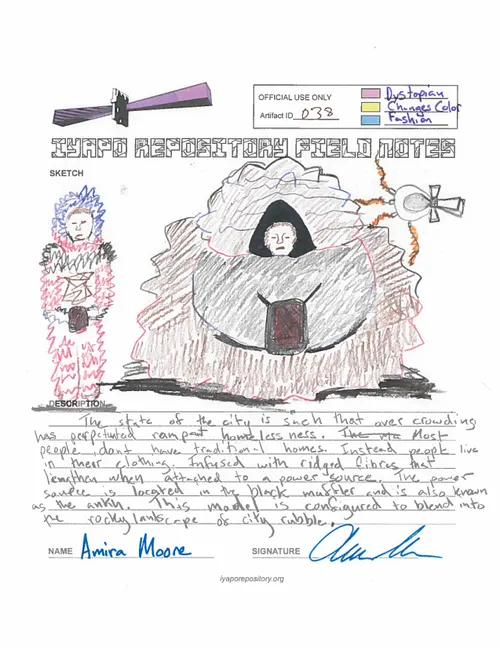 OFFICIAL USE ONLY
Artifact ID 038
Dystopian
Changes Color
Fashion
IYAPO REPOSITORY FIELD NOTES
SKETCH
DESCRIPTION
The state of the city is such that over crowding
has perpetuated rampant homelessness. The Most
people dont have traditional homes. Instead people live
in their clothing. Infused with ridged fibres that
lengthen when attached to a power source. The power
source is located in the black muffler and is also known
as the ankh. This model is configured to blend into
the rocky landscape of city rubble.
NAME Amira Moore
SIGNATURE
iyaporepository.org